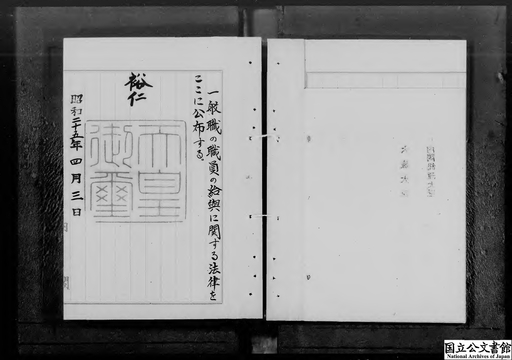 一般職の職員の給與に関する法律を
ここに公布する。
裕仁
天皇
御璽
昭和二十五年四月三日
国立公文書館
National Archives of Japan